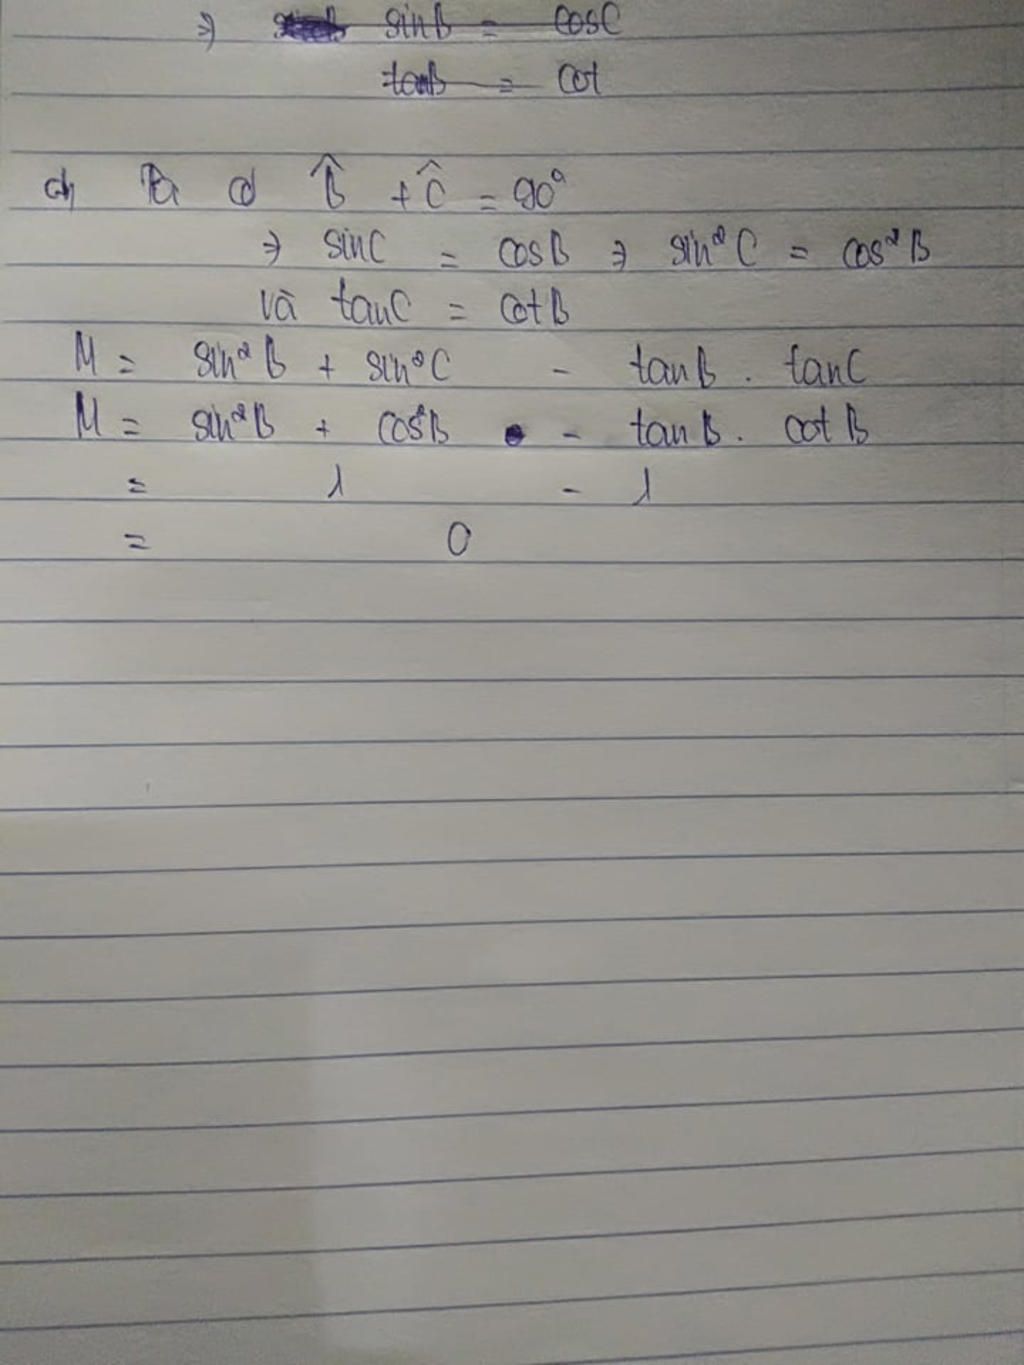 ⇒ sinB = cosC
tanB = cot
d) Ta có B̂ + Ĉ = 90°
⇒ sinC = cosB ⇒ sin²C = cos²B
và tanC = cotB
M = sin²B + sin²C - tanB . tanC
M = sin²B + cos²B - tanB . cotB
= 1 - 1
= 0